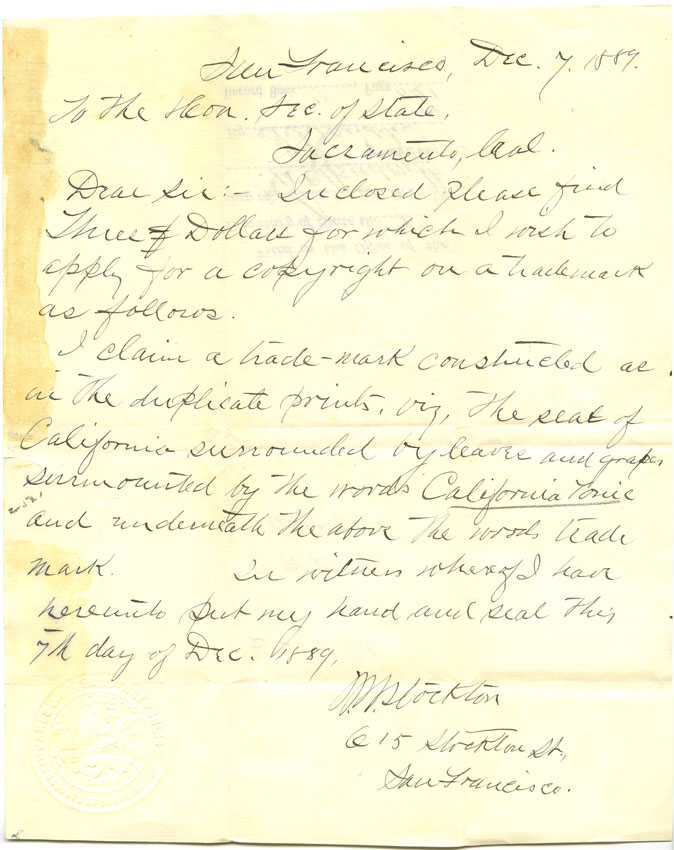 San Francisco, Dec. 7. 1889.
To the Hon. Sec. of State,
Sacramento, Cal.
Dear Sir:- Inclosed please find
Three Dollars for which I wish to
apply for a copyright on a trademark
as follows.
I claim a trade-mark constructed as
in the duplicate prints, viz, The seal of
California surrounded by leaves and grapes
surmounted by the words California Tonic
and underneath the above the words trade
mark. In witness whereof I have
hereunto put my hand and seal this
7th day of Dec. 1889,
Stockton
615 Stockton St.,
San Francisco.